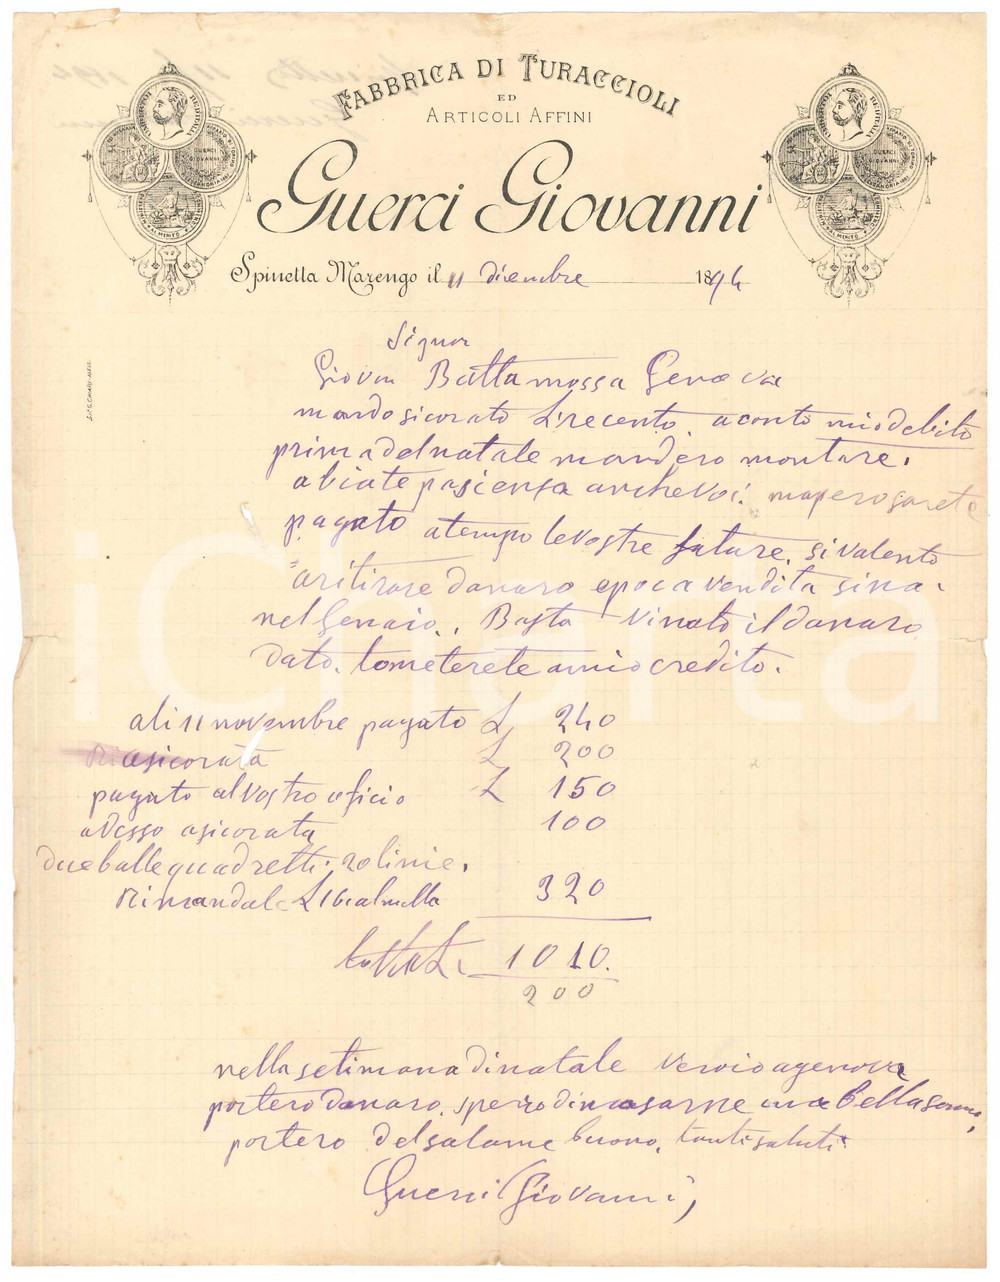 FABBRICA DI TURACCIOLI
ED
ARTICOLI AFFINI
Guerci Giovanni
Spinetta Marengo il 11 dicembre 1894
Signor
Giovan Batta mossa Genova
mando sicorato Lire cento aconto mio debito
prima del natale mandero montare.
abiate pasiensa anche voi. ma pero sarete
pagato a tempo le vostre fature, si va lento
a ritirare danaro epoca vendita sina
nel Genaio, Basta Vinato il danaro
dato. lo meterete a mio credito.
ali 11 novembre pagato L 240
asicorata L 200
pagato al vostro oficio L 150
adesso asicorata 100
due balle quadretti 20 linie.
Rimandale L 16 almilla 320
totta L. 1010.
200
nella setimana di natale vervio a genova
portero danaro, spero d'incasarne una bella soma,
portero del salame buono, tanti saluti
Guerci Giovanni
iCharta